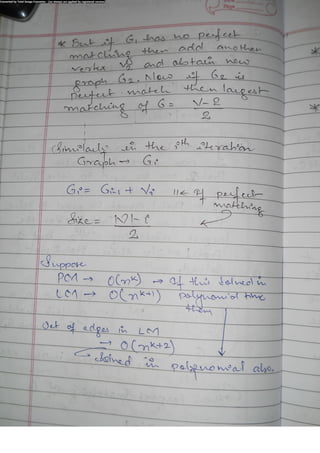 * But if G, has no perfect
matching then add another
vertex V2 and obtain new
graph G2. Now if G2 is
perfect match then largest
matching of G = V-2
2
Similarly in the ith iteration
Graph → Gi
Gi = Gi-1 + Vi if perfect
matching
Size = |V|-i
2
Suppose
PCM → O(n^k) → If this solved in
LM → O(n^k+1) polynomial time
then
Set of edges in LM
→ O(n^k+2)
solved in polynomial also.